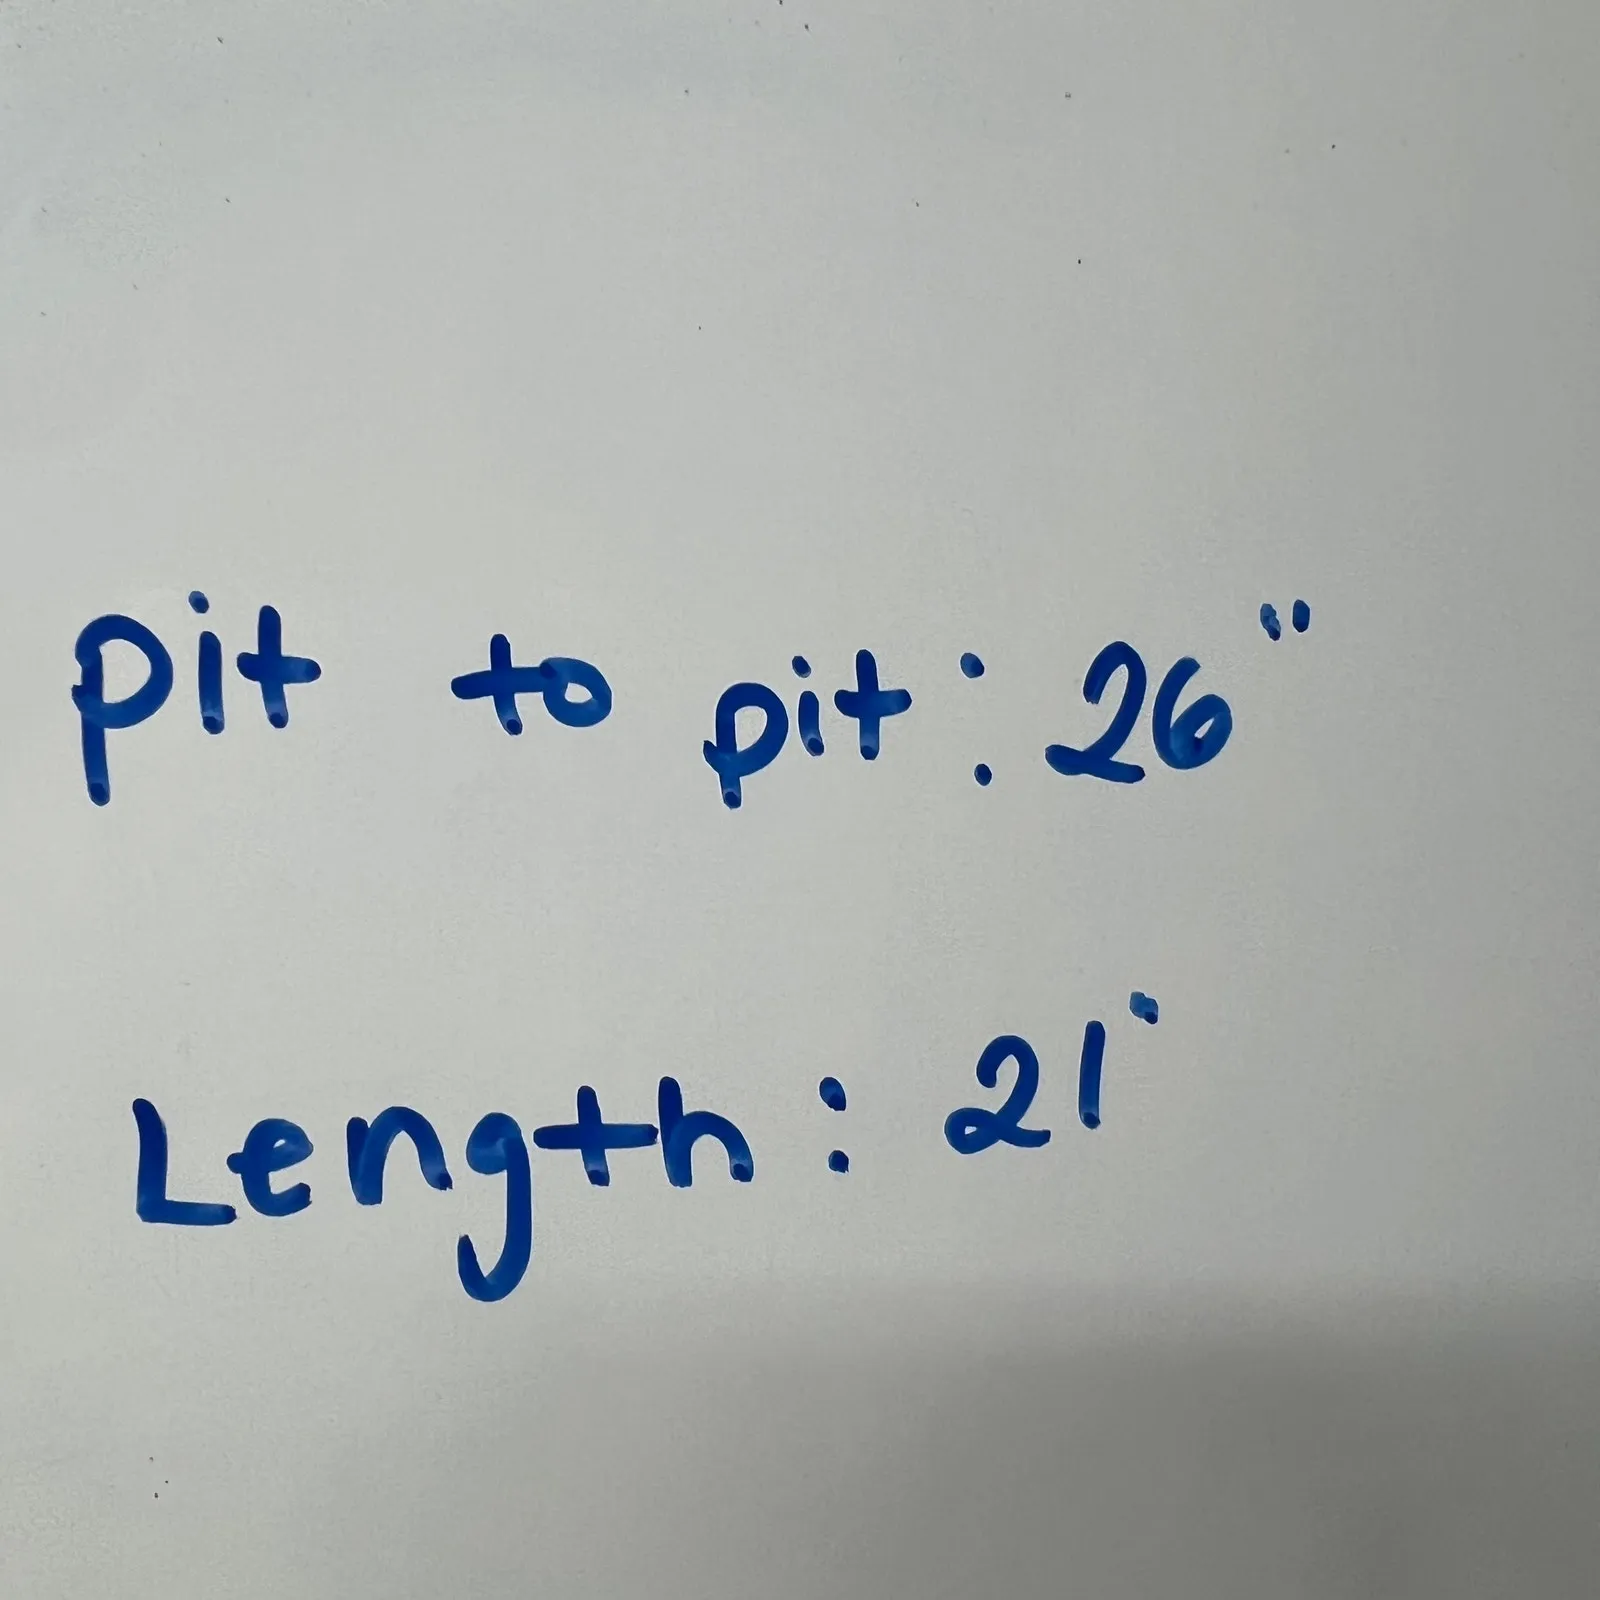 pit to pit: 26"
Length: 21"